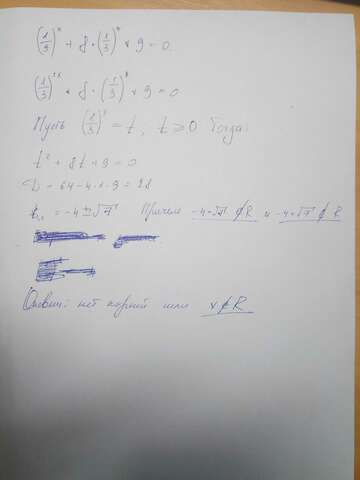 (1/9)^x + 8 · (1/3)^x + 9 = 0.
(1/3)^2x + 8 · (1/3)^x + 9 = 0
Пусть (1/3)^x = t, t ≥ 0 Тогда:
t² + 8t + 9 = 0
D = 64 - 4 · 1 · 9 = 28
t₁,₂ = -4 ± √7 Причем -4-√7 ∉ R и -4+√7 ∉ R
Ответ: нет корней или x ∉ R